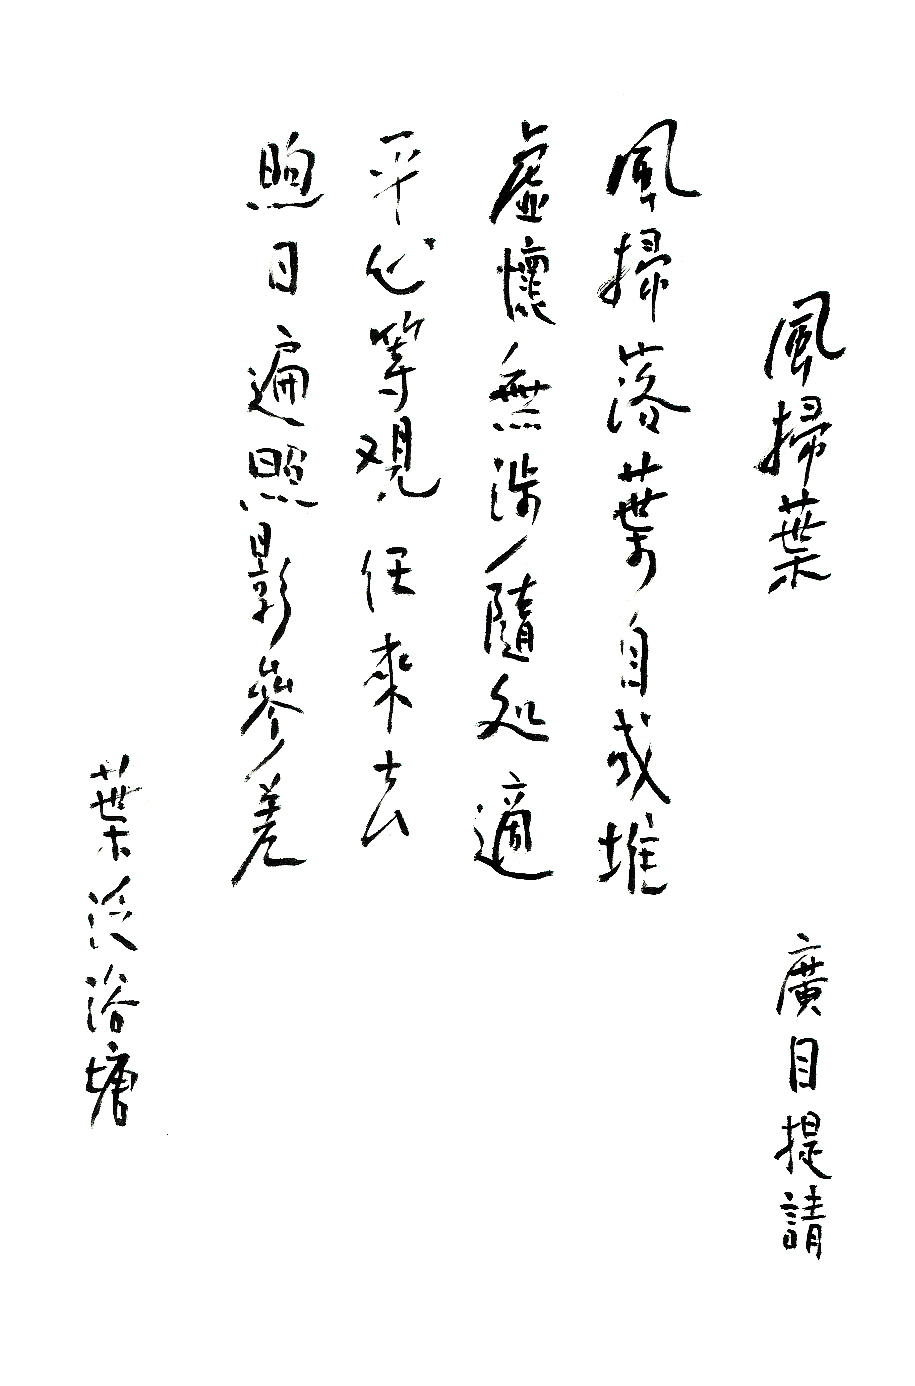 風掃葉
廣目提請
風掃落葉自成堆
虛懷無涉隨処適
平心等覌任來去
煦日遍照影參差
葉浴塘